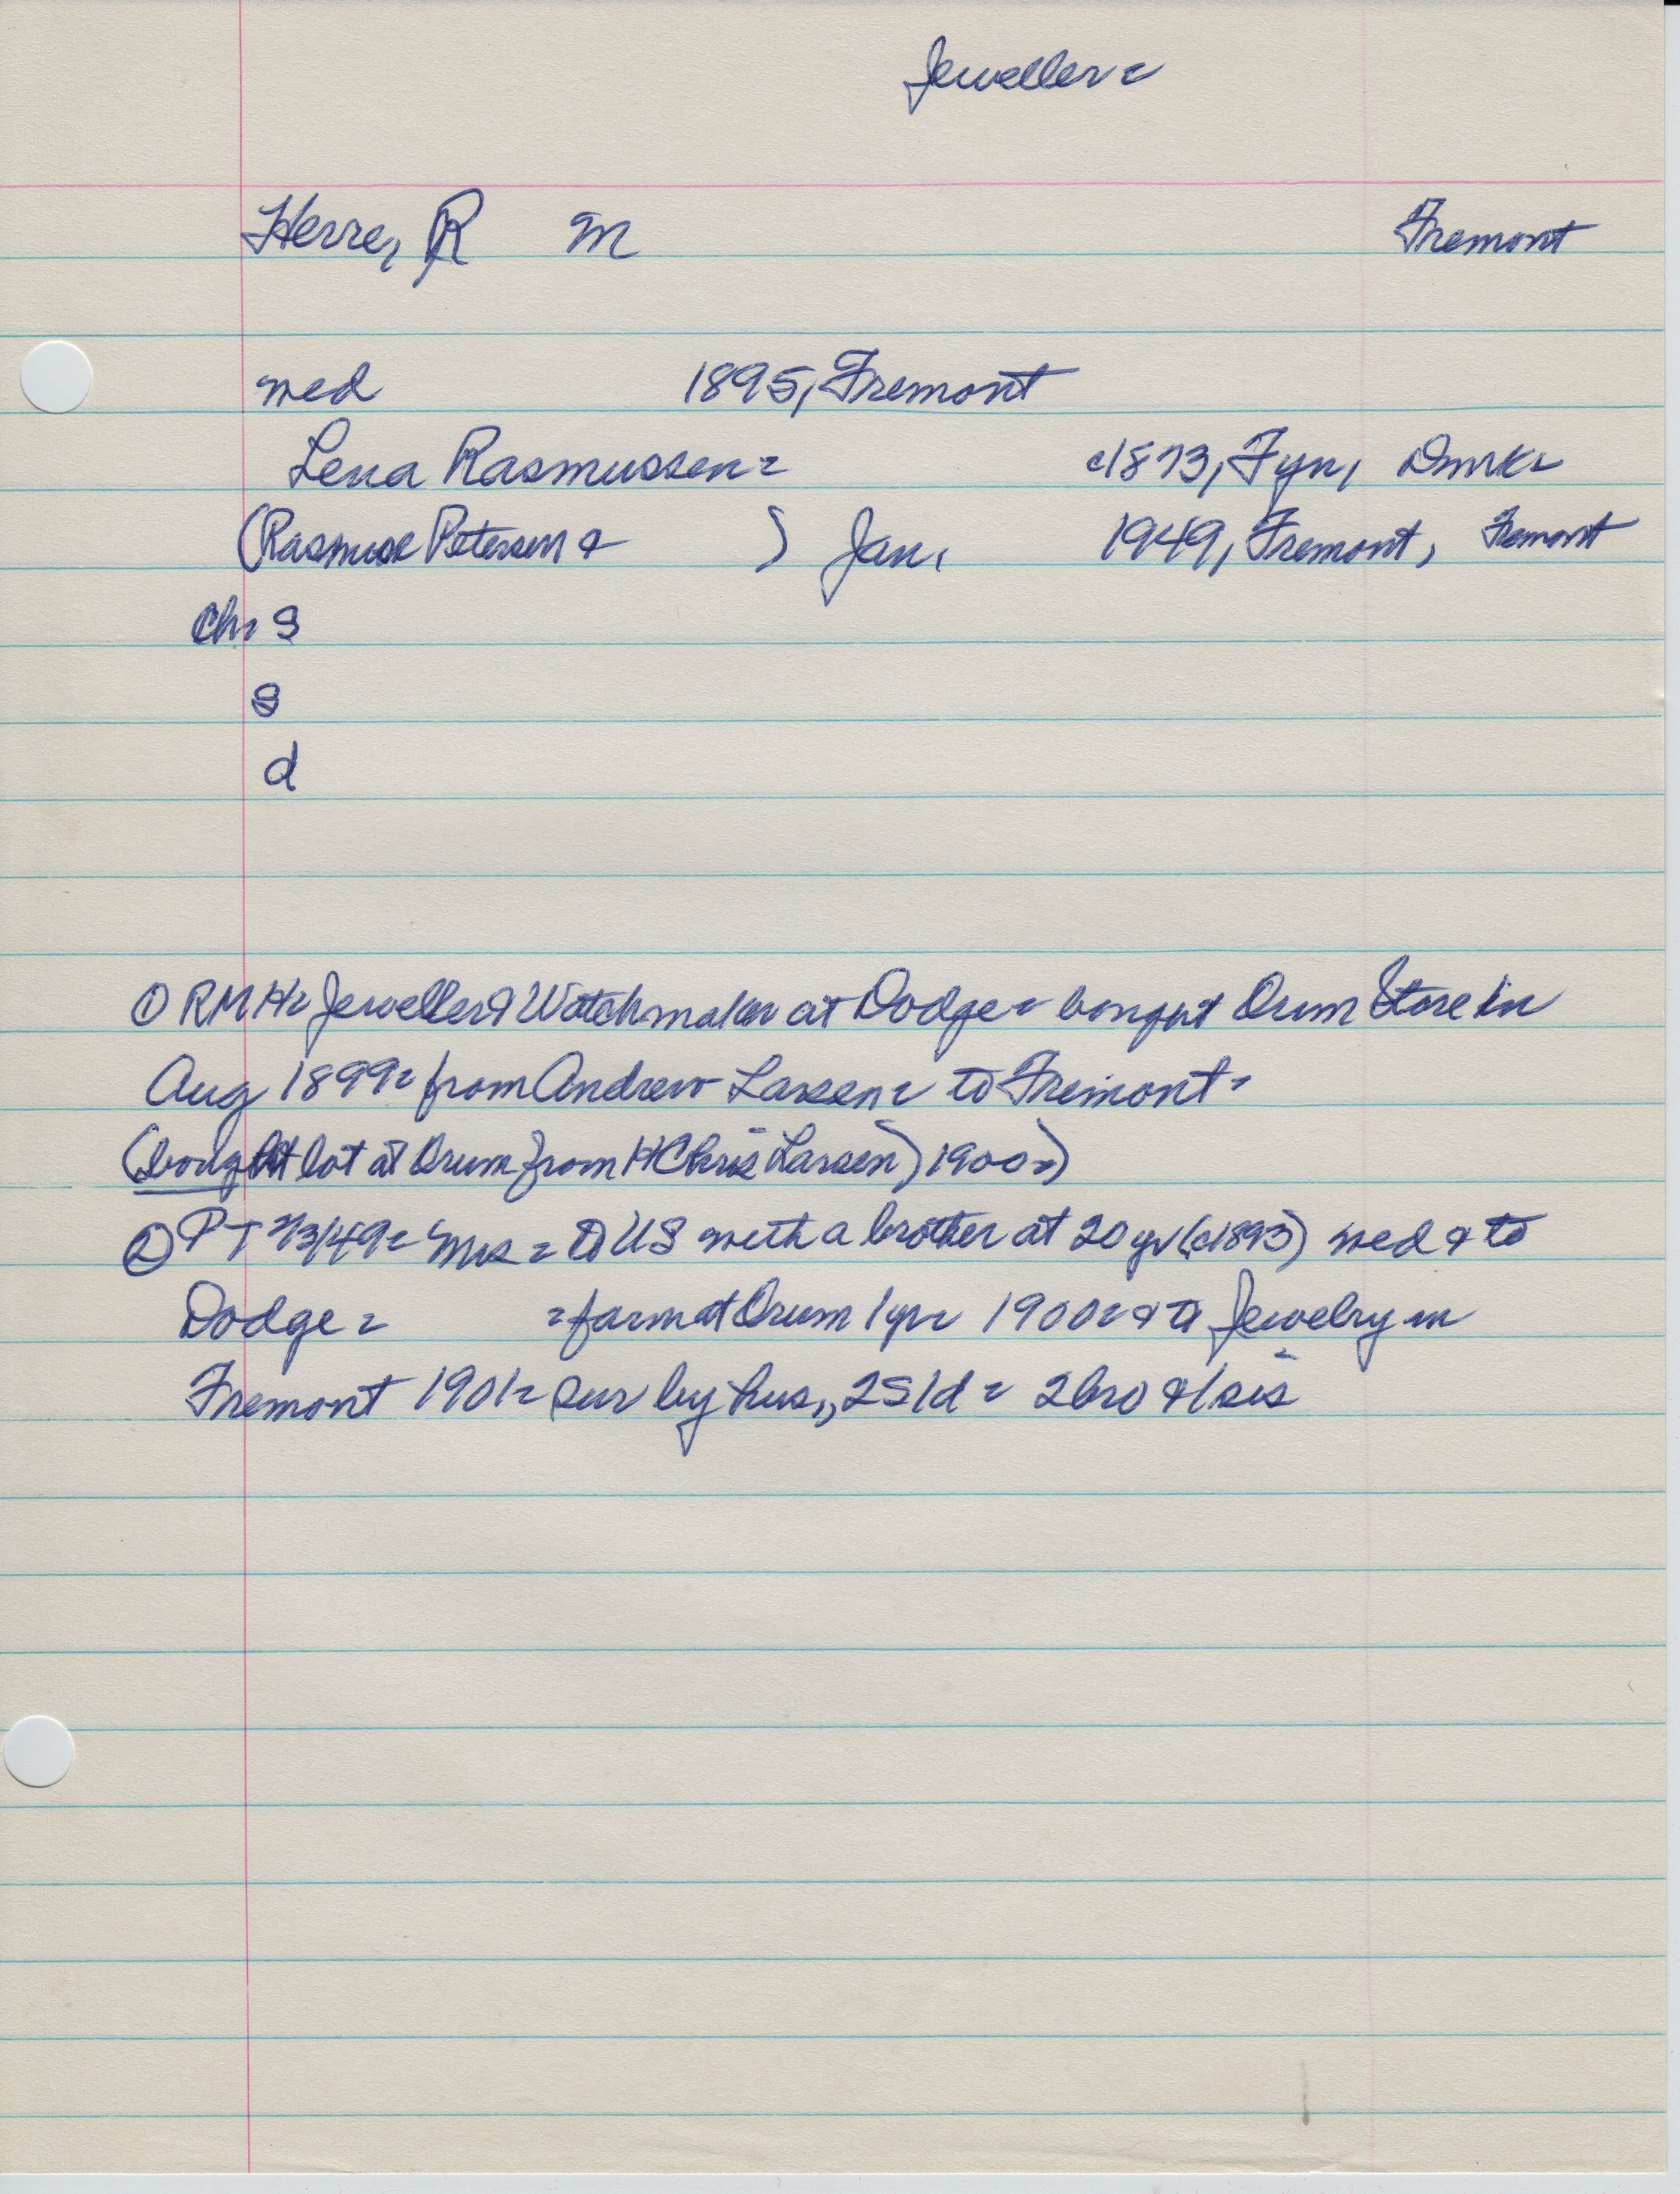 Jeweller=
Herre, R M Fremont
wed 1895, Fremont
Lena Rasmussen= c1873, Fyn, Dmk=
(Rasmus Petersen & ) Jan. 1949, Fremont, Fremont
Ch= S
S
d
① RMH= Jeweller & Watchmaker at Dodge= bought Orum Store in
Aug 1899= from Andrew Larsen= to Fremont=
(bought lot at Orum from H Chris Larsen) 1900=)
② PT 2/3/49= Mrs= to US with a brother at 20 yr (c1893) wed & to
Dodge= =farm at Orum 1yr= 1900= & to Jewelry in
Fremont 1901= sur by hus,, 2S 1d= 2bro & 1sis